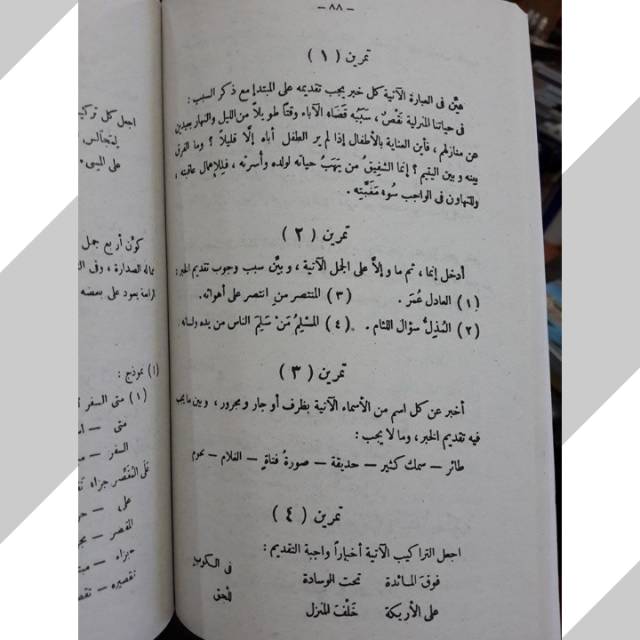 — ٨٨ —
تمرين ( ١ )
عيّن فى العبارة الآتية كل خبر يجب تقديمه على المبتدإ مع ذكر السبب :
فى حياتنا المنزلية نَقْصٌ ، سَبَبُه قَضَاء الآباء وقتًا طويلاً من الليل والنهار بعيدين
عن منازلهم ، فأين العناية بالأطفال إذا لم ير الطفل أباه إلّا قليلاً ؟ وما الفرق
بينه و بين اليتيم ؟ إنما الشفيقُ من يَهَبُ حياته لولده وأسرته ، فللإهمال عاقبته ،
وللتهاون فى الواجب سُوء مَغَبَّتِه .
تمرين ( ٢ )
أدخل إنما ، ثم ما وإلاّ على الجمل الآتية ، وبيّن سبب وجوب تقديم الخبر :
( ١ ) العادل عُمَر . ( ٣ ) المنتصر من انتصر على أهوائه .
( ٢ ) المُذِلُّ سؤال اللئام . ( ٤ ) المسْلِمُ مَنْ سَلِمَ الناس من يده ولسانه
تمرين ( ٣ )
أخبر عن كل اسم من الأسماء الآتية بظرف أو جار ومجرور ، وبين ما يجب
فيه تقديم الخبر ، وما لا يجب :
طائر — سمك كثير — حديقة — صورةُ فتاةٍ — الغلام — نجوم
تمرين ( ٤ )
اجعل التراكيب الآتية أخبارا واجبة التقديم :
فوق المائدة تحت الوسادة فى الكوب
على الأريكة خَلْفَ المنزل للحق
اجعل كل تركيب
على المسىء .
كوّن أربع جمل
ماله الصدارة ، وفى
الرابعة يعود على بعضه
(١) نموذج :
( ١ ) متى السفر
متى —
السفر —
على المُقَصّر جزاء
على —
المقصر —
جزاء —
تقصيره —